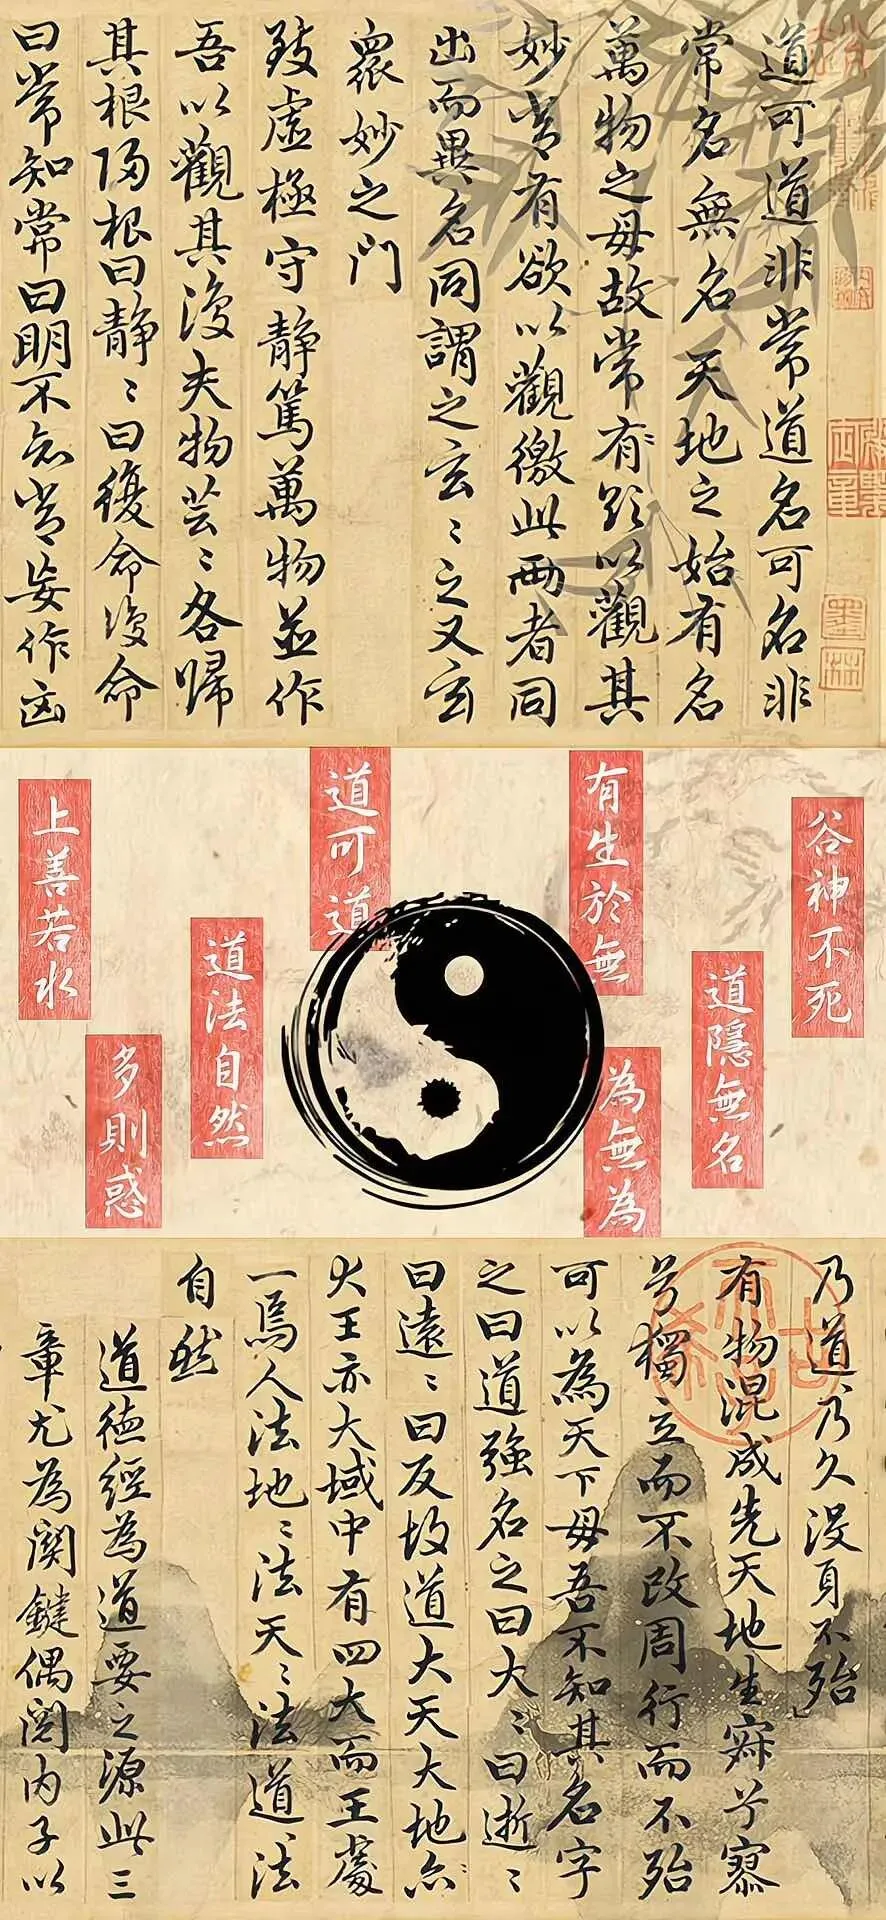 道可道非常道名可名非
常名無名天地之始有名
萬物之毋故常有欲以觀其
妙常有欲以觀徼此兩者同
出而異名同謂之玄〻之又玄
眾妙之門
致虛極守靜篤萬物並作
吾以觀其復夫物芸〻各歸
其根歸根曰靜〻曰復命復命
曰常知常曰明不知常妄作凶
谷神不死
道隱無名
有生於無
為無為
道可道
道法自然
多則惑
上善若水
乃道〻乃久沒身不殆
有物混成先天地生寂兮寥
兮獨立而不改周行而不殆
可以為天下母吾不知其名字
之曰道強名之曰大〻曰逝〻
曰遠〻曰反故道大天大地亦
大王亦大域中有四大而王處
一焉人法地〻法天〻法道〻法
自然
道德經為道要之源此三
章尤為関鍵偶閱內子以